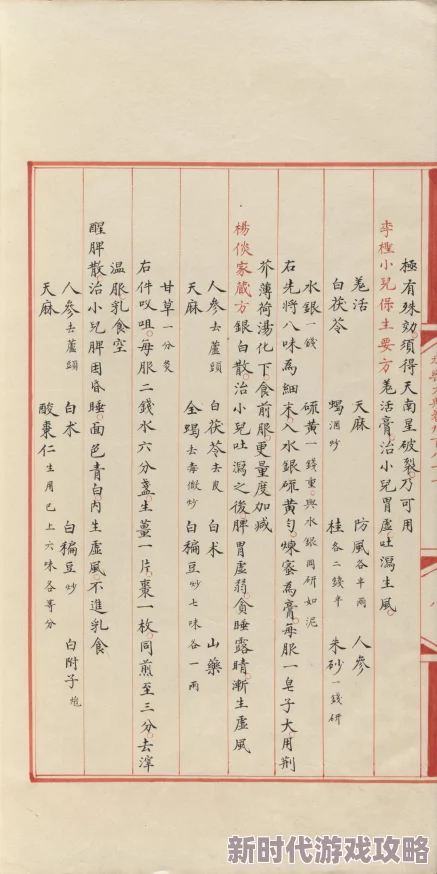 極有殊効須得天南星破裂乃可用
李檉小兒保生要方羗活膏治小兒胃虛吐瀉生風
羗活 天麻 防風各半兩 人參
白茯苓 蝎酒炒 桂各二錢半 朱砂一錢研
水銀一錢 硫黄一錢重與水銀同研如泥
右先將八味為細末入水銀硫黄勻煉蜜為膏每服一皂子大用荆
芥薄荷湯化下食前服更量度加減
楊倓家藏方銀白散治小兒吐瀉之後脾胃虛弱貪睡露睛漸生虛風
人參去蘆頭 白茯苓去皮 白术 山藥
天麻 全蝎去毒微炒 白稨豆炒七味各一兩
甘草一分炙
右件㕮咀每服二錢水六分盞生薑一片棗一枚同煎至三分去滓
溫服乳食空
醒脾散治小兒脾困昏睡面色青白内生虛風不進乳食
人參去蘆頭 白术 白稨豆炒 白附子炮
天麻 酸棗仁生用已上六味各等分
新时代游戏攻略